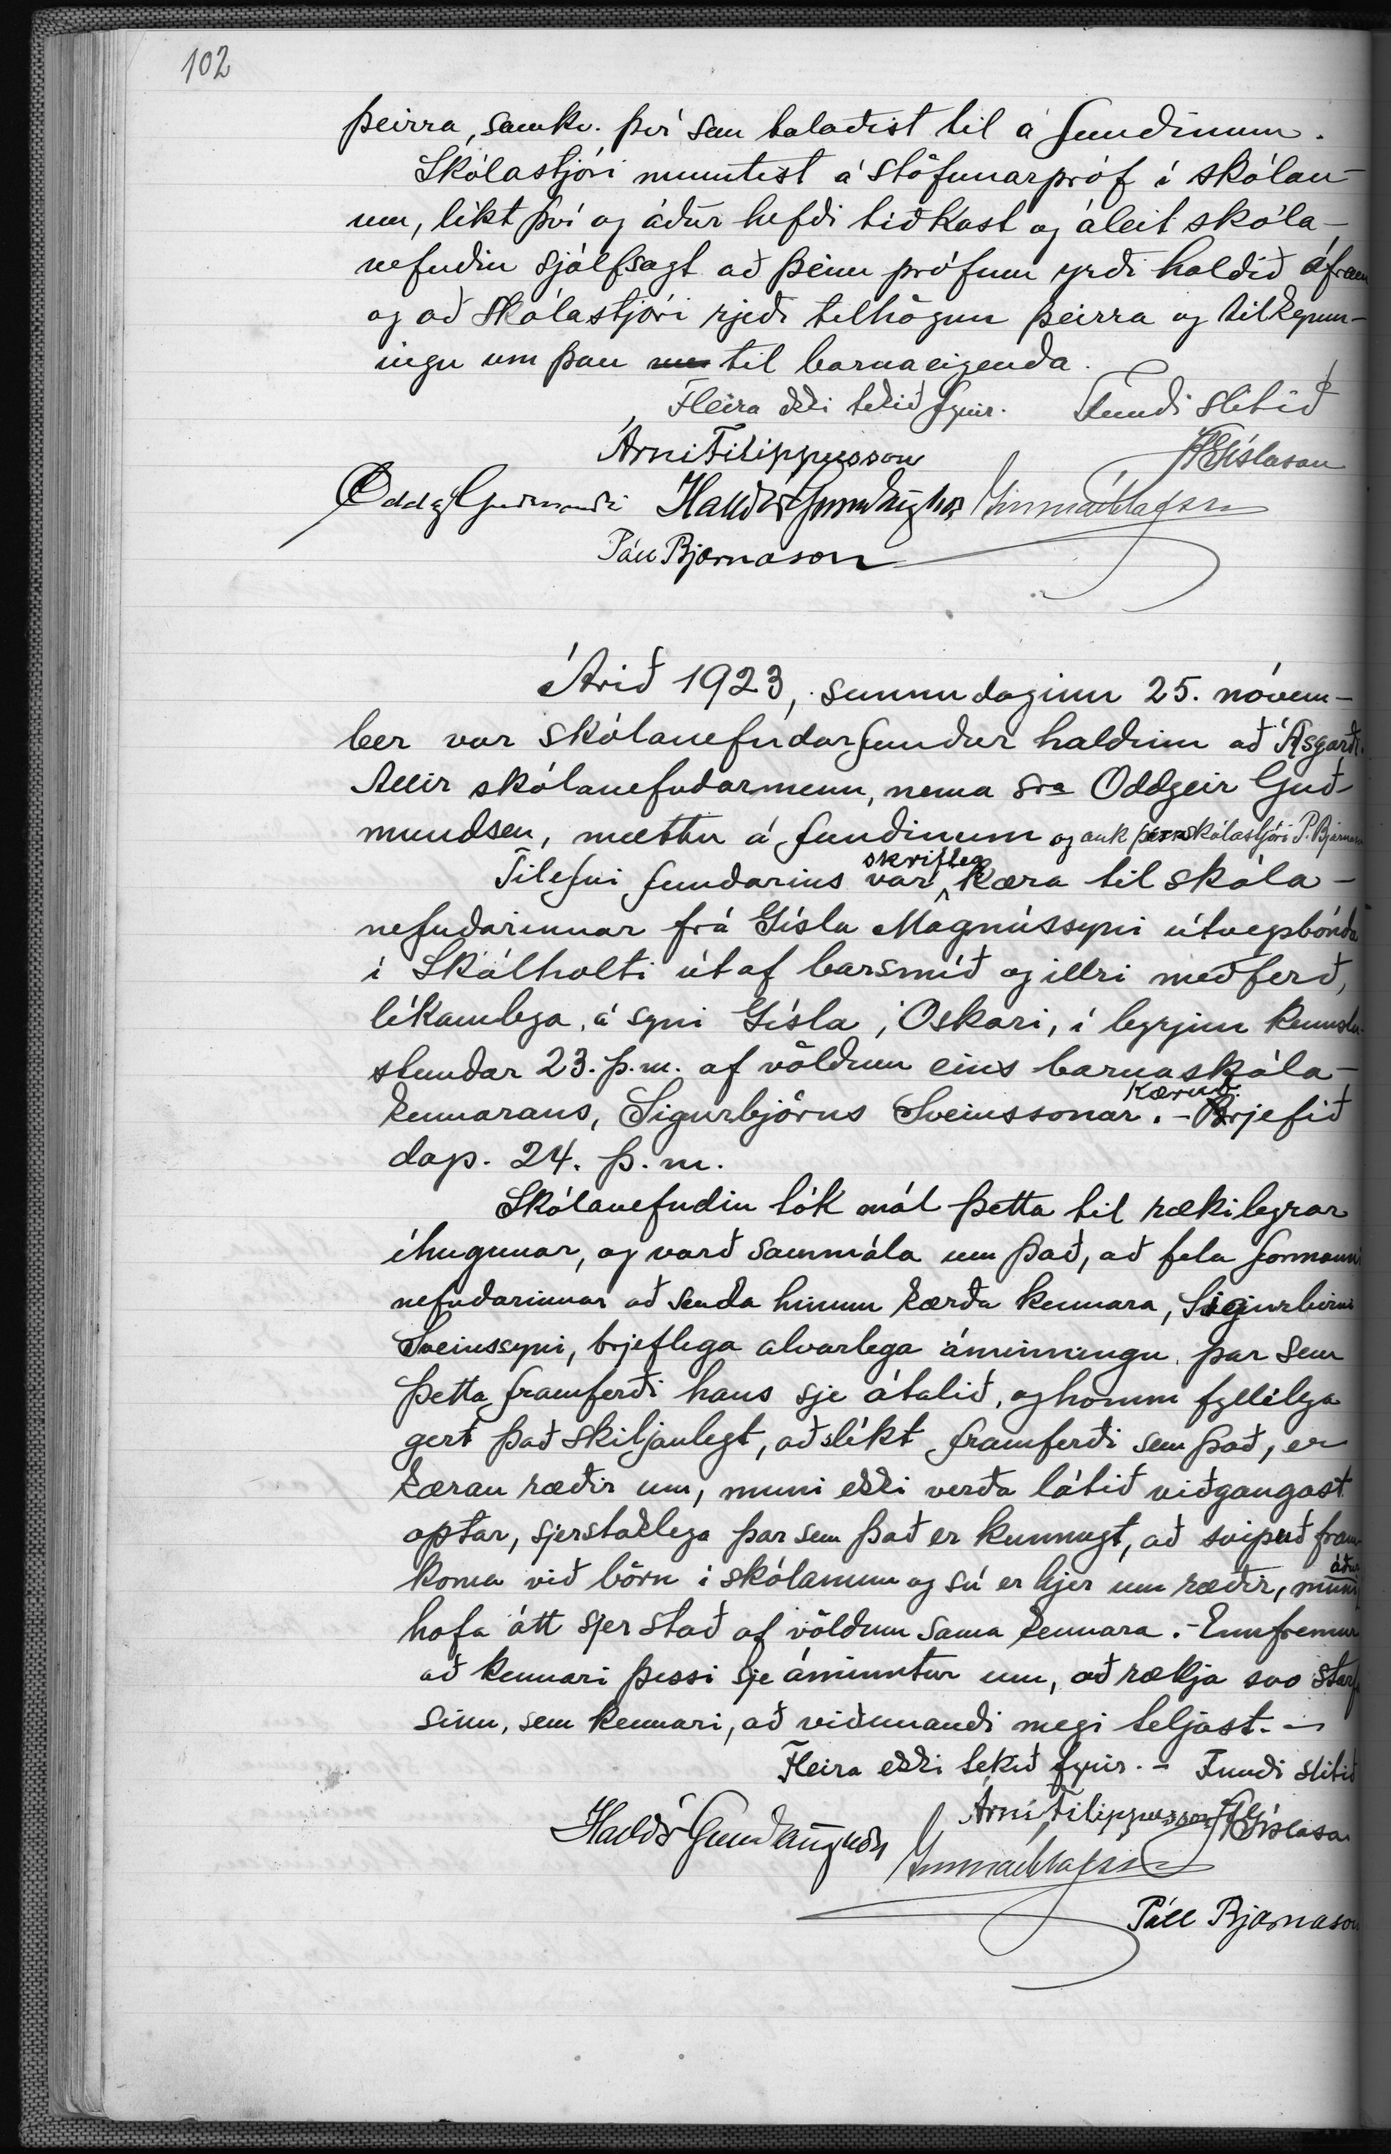 102
þeirra, samkv. því sem talaðist til á fundinum.
Skólastjóri mnntist á stöfunarpróf í skólan-
um, líkt því og áður hefði tíðkast og áleit skóla-
nefndin sjálfsagt að þeim prófum yrði haldið áfram
og að skólastjóri rjeði tilhögun þeirra og tilkynn-
ingu um þau til barnaeigenda.
Fleira ekki tekið fyrir. Fundi slitið
Árni Filippusson JGíslason
Oddg Guðmundsen Halldór Gunnlaugsson
Páll Bjarnason
Árið 1923, sunnudaginn 25. nóvem-
ber var skólanefndarfundur haldinn að Ásgarði.
Allir skólanefndarmenn, nema sra Oddgeir Guð-
mundsen, mættu á fundinum og auk þeirra skólastjóri P. Bjarnason
Tilefni fundarins var skrifleg kæra til skóla-
nefndarinnar frá Gísla Magnússyni útvegsbónda
í Skálholti út af barsmíð og illri meðferð,
líkamlega, á syni Gísla, Óskari, í byrjun kennslu-
stundar 23. þ.m. af völdum eins barnaskóla-
kennarans, Sigurbjörns Sveinssonar. - Kærubrjefið
dags. 24. þ.m.
Skólanefndin tók mál þetta til rækilegrar
íhugunar, og varð sammála um það, að fela formanni
nefndarinnar að senda hinum kærða kennara, Sigurbirni
Sveinssyni, brjeflega alvarlega áminningu, þar sem
þetta framferði hans sje átalið, og honum fyllilega
gert það skiljanlegt, að slíkt framferði sem það, er
kæran ræðir um, muni ekki verða látið viðgangast
optar, sjerstaklega þar sem það er kunnugt, að svipuð fram-
koma við börn í skólanum og sú er hjer um ræðir, muni áður
hafa átt sjer stað af völdum sama kennara. - Ennfremur
að kennari þessi sje áminntur um, að rækja svo starf
sinn, sem kennari, að viðunandi megi teljast. -
Fleira ekki tekið fyrir. - Fundi slitið
Árni Filippusson JGíslason
Halldór Gunnlaugsson
Páll Bjarnason